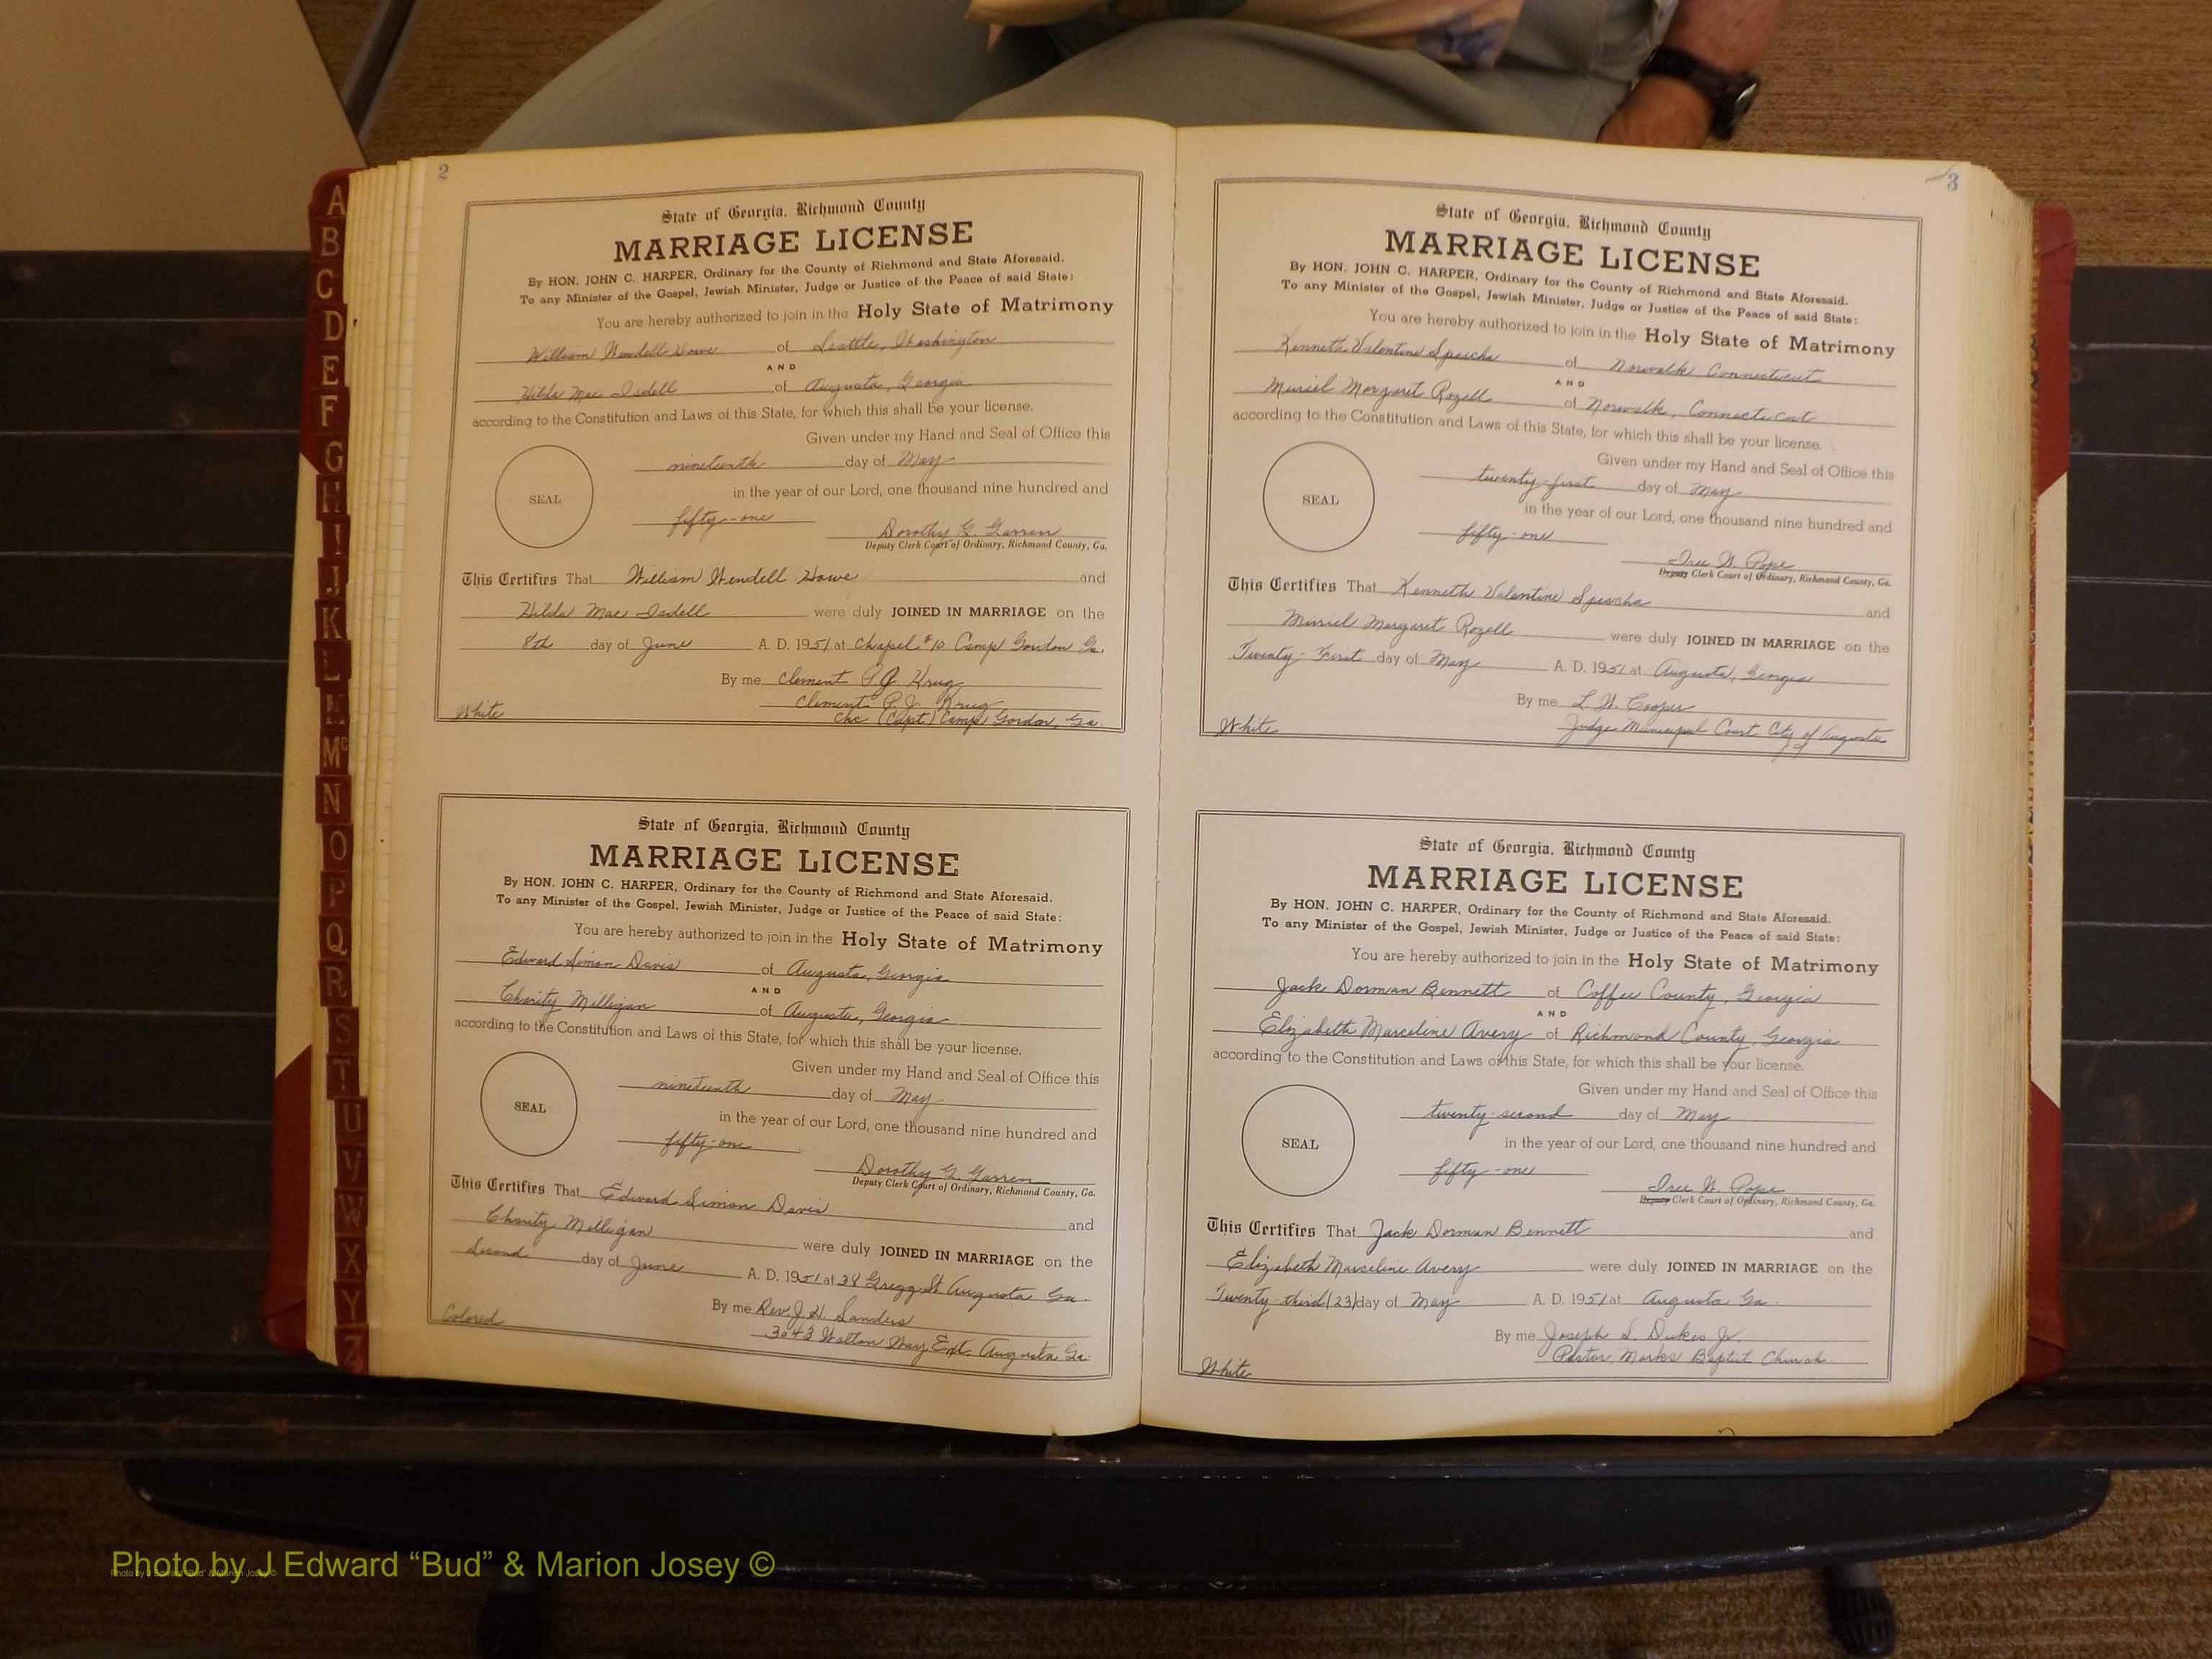 2
State of Georgia, Richmond County
MARRIAGE LICENSE
By HON. JOHN C. HARPER, Ordinary for the County of Richmond and State Aforesaid.
To any Minister of the Gospel, Jewish Minister, Judge or Justice of the Peace of said State:
You are hereby authorized to join in the Holy State of Matrimony
William Wendell Howe of Seattle, Washington
AND
Hilda Mae Isdell of Augusta, Georgia
according to the Constitution and Laws of this State, for which this shall be your license.
Given under my Hand and Seal of Office this
nineteenth day of May
SEAL
in the year of our Lord, one thousand nine hundred and
fifty-one
Dorothy G. Garren
Deputy Clerk Court of Ordinary, Richmond County, Ga.
This Certifies That William Wendell Howe and
Hilda Mae Isdell were duly JOINED IN MARRIAGE on the
8th day of June A. D. 1951 at Chapel #10 Camp Gordon Ga.
By me Clement P. J. Krug
Clement P. J. Krug
Chc (Capt) Camp Gordon, Ga.
White
State of Georgia, Richmond County
MARRIAGE LICENSE
By HON. JOHN C. HARPER, Ordinary for the County of Richmond and State Aforesaid.
To any Minister of the Gospel, Jewish Minister, Judge or Justice of the Peace of said State:
You are hereby authorized to join in the Holy State of Matrimony
Edward Simon Davis of Augusta, Georgia
AND
Charity Milligan of Augusta, Georgia
according to the Constitution and Laws of this State, for which this shall be your license.
Given under my Hand and Seal of Office this
nineteenth day of May
SEAL
in the year of our Lord, one thousand nine hundred and
fifty-one
Dorothy G. Garren
Deputy Clerk Court of Ordinary, Richmond County, Ga.
This Certifies That Edward Simon Davis
Charity Milligan and
were duly JOINED IN MARRIAGE on the
Second day of June A. D. 1951 at 38 Gregg St Augusta Ga.
By me Rev. J. H. Sanders
3043 Walton Way Ext. Augusta Ga.
Colored
3
State of Georgia, Richmond County
MARRIAGE LICENSE
By HON. JOHN C. HARPER, Ordinary for the County of Richmond and State Aforesaid.
To any Minister of the Gospel, Jewish Minister, Judge or Justice of the Peace of said State:
You are hereby authorized to join in the Holy State of Matrimony
Kenneth Valentine of Norwalk Connecticut
AND
Muriel Margaret Rozell of Norwalk, Connecticut
according to the Constitution and Laws of this State, for which this shall be your license.
Given under my Hand and Seal of Office this
twenty-first day of May
SEAL
in the year of our Lord, one thousand nine hundred and
fifty-one
W. Pope
Deputy Clerk Court of Ordinary, Richmond County, Ga.
This Certifies That Kenneth Valentine and
Muriel Margaret Rozell were duly JOINED IN MARRIAGE on the
Twenty-First day of May A. D. 1951 at Augusta, Georgia
By me L. W. Cooper
Judge Municipal Court City of Augusta
White
State of Georgia, Richmond County
MARRIAGE LICENSE
By HON. JOHN C. HARPER, Ordinary for the County of Richmond and State Aforesaid.
To any Minister of the Gospel, Jewish Minister, Judge or Justice of the Peace of said State:
You are hereby authorized to join in the Holy State of Matrimony
Jack Dorman Bennett of Coffee County, Georgia
AND
Elizabeth Marceline Avery of Richmond County, Georgia
according to the Constitution and Laws of this State, for which this shall be your license.
Given under my Hand and Seal of Office this
twenty-second day of May
SEAL
in the year of our Lord, one thousand nine hundred and
fifty-one
W. Pope
Deputy Clerk Court of Ordinary, Richmond County, Ga.
This Certifies That Jack Dorman Bennett and
Elizabeth Marceline Avery were duly JOINED IN MARRIAGE on the
Twenty-third (23) day of May A. D. 1951 at Augusta Ga.
By me Joseph S. Dukes Jr.
Pastor, Marks Baptist Church
White
A
B
C
D
E
F
G
H
I
J
K
L
M
Mc
N
O
P
Q
R
S
T
U
V
W
X
Y
Z
Photo by J Edward “Bud” & Marion Josey ©
Photo by J Edward “Bud” & Marion Josey ©